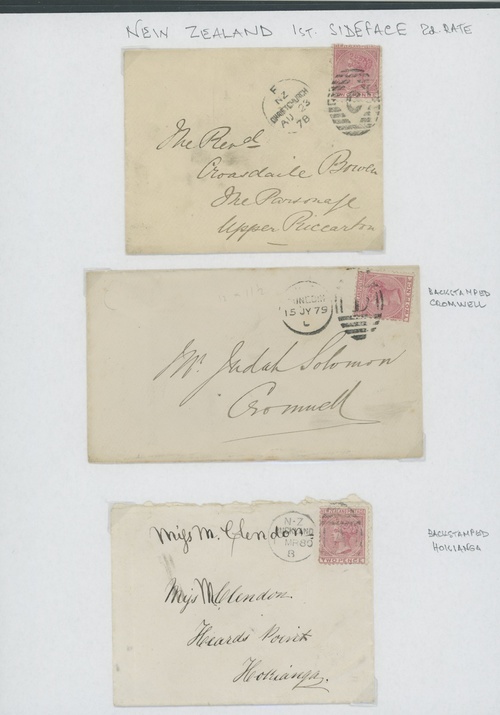 NEW ZEALAND 1ST. SIDEFACE 2d RATE
F
NZ
CHRISTCHURCH
AU 23
78
C
The Revd
Croasdaile Bowen
The Parsonage
Upper Riccarton
BACKSTAMPED
CROMWELL
DUNEDIN
15 JY 79
L
D
TWOPENCE
Mr Judah Solomon
Cromwell
N-Z
MR 80
8
TWOPENCE
Miss M. Clendon
BACKSTAMPED
HOKIANGA
Miss M Clendon.
Heards Point
Hokianga